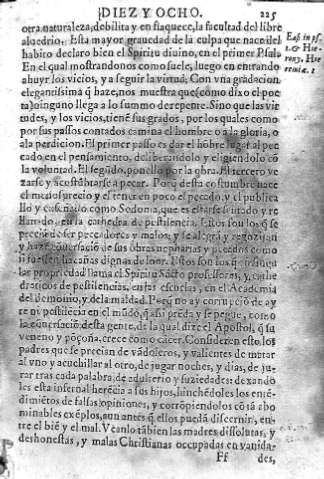 DIEZ Y OCHO. 225
otra naturaleza, debilita y enflaquece, la facultad del libre
aluedrio. Esta mayor grauedad de la culpa que nace del
habito declaro bien el Spiritu diuino, en el primer Psal.
En el qual mostrandonos como suele, luego en entrando
a huyr los vicios, y a seguir la virtud, Con vna gradacion
elegantissima q̃ haze, nos muestra que (como dixo el poe
ta) ninguno llega a lo summo de repente. Sino que las virtu
des, y los vicios, tienẽ sus grados, por los quales como
por sus passos contados camina el hombre o a la gloria, o
a la perdicion. El primer passo es dar el hõbre lugar al pec
cado en el pensamiento, deliberandolo y eligiendolo cõ
la voluntad. El segũdo, ponello por la obra. Al tercero ve
zarse y acostũbrarse a pecar. Porq̃ desta costumbre nace
el menosprecio y el tener en poco el pecado, y el publica
llo y como Sodoma, que es estarse sentado y re
en la cathedra de pestilencia. Estos son los q̃ se
precian de ser pecadores y malos, y se alegrã y regozijan
y de sus obras y pecados como
si fuessen hazañas dignas de loor. Estos son los
las propriedad llama el Spiritu Sãcto professores, y cathe
draticos de pestilencias, en las escuelas, en el Academia
del demonio, y de la maldad. Porq̃ no ay corrupciõ de ay
re ni pestilecia en el mũdo, q̃ assi prẽda y se pegue, como
la contratació desta gente, de la qual dize el Apostol, q̃ su
veneno y põçoña, crece como cácer. Consideren esto, los
padres que se precian de vãdoleros, y valientes de matar
al vno y acuchillar al otro, de jugar noches, y dias, de ju-
rar tras cada palabra, de adulterio y suziedades: dexando
les esta infernal herẽcia a sus hijos, hinchẽdoles los entẽ-
dimiẽtos de falsas opiniones, y corrõpiendolos cõ tã abo
minables exẽplos, aun antes q̃ ellos puedã discernir, en-
tre el biẽ y el mal. Veanlo tãbien las madres dissolutas, y
deshonestas, y malas Christianas occupadas en vanida-
Ff des,
in ps.
1. &
rony.
1